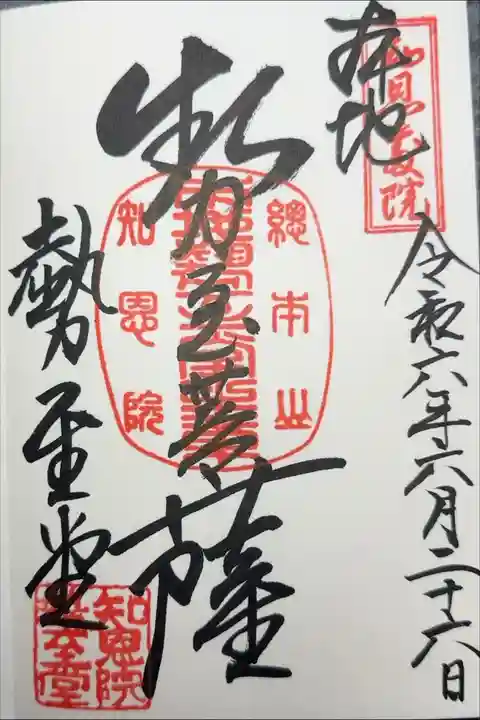 本地
令和六年六月二十六日
勢至菩薩
總本山
知恩院
勢至堂
知恩院
勢至堂